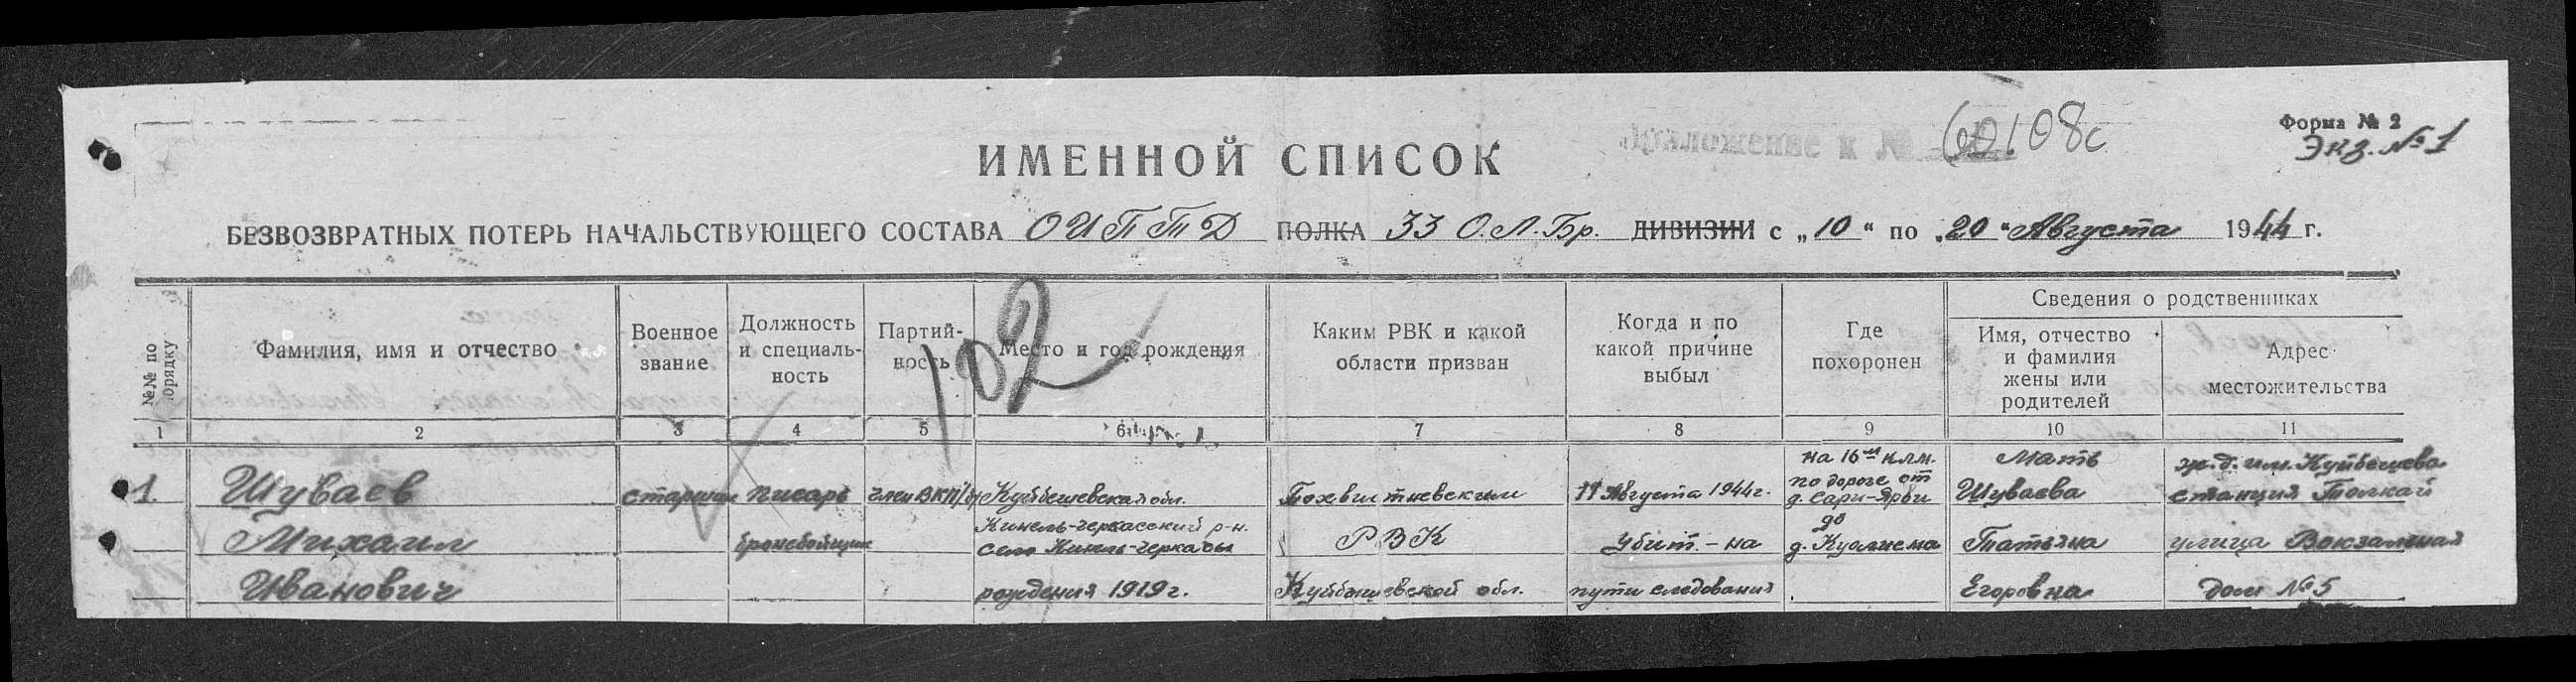 Форма № 2
Приложение к № 60108с
Экз. №1
ИМЕННОЙ СПИСОК
БЕЗВОЗВРАТНЫХ ПОТЕРЬ НАЧАЛЬСТВУЮЩЕГО СОСТАВА ОИПТД ПОЛКА 33 О.Л.Бр. ДИВИЗИИ с „10“ по „20“ Августа 1944 г.
102
№№ по порядку
Фамилия, имя и отчество
Военное звание
Должность и специаль-
ность
Партий-
ность
Место и год рождения
Каким РВК и какой
области призван
Когда и по
какой причине
выбыл
Где
похоронен
Сведения о родственниках
Имя, отчество
и фамилия
жены или
родителей
Адрес
местожительства
1 2 3 4 5 6 7 8 9 10 11
1.
Шуваев
Михаил
Иванович
старшина
писарь
бронебойщик
член ВКП/б/
Куйбышевская обл.
Кинель-черкасский р-н.
село Кинель-черкасы
рождения 1919 г.
Похвистневским
РВК
Куйбышевской обл.
11 Августа 1944 г.
Убит - на
пути следования
на 16м клм.
по дороге от
д. Сари-Ярги
до
д. Куалисма
Мать
Шуваева
Татьяна
Егоровна
ж.д. им. Куйбышева
станция Толкай
улица Вокзальная
дом №5